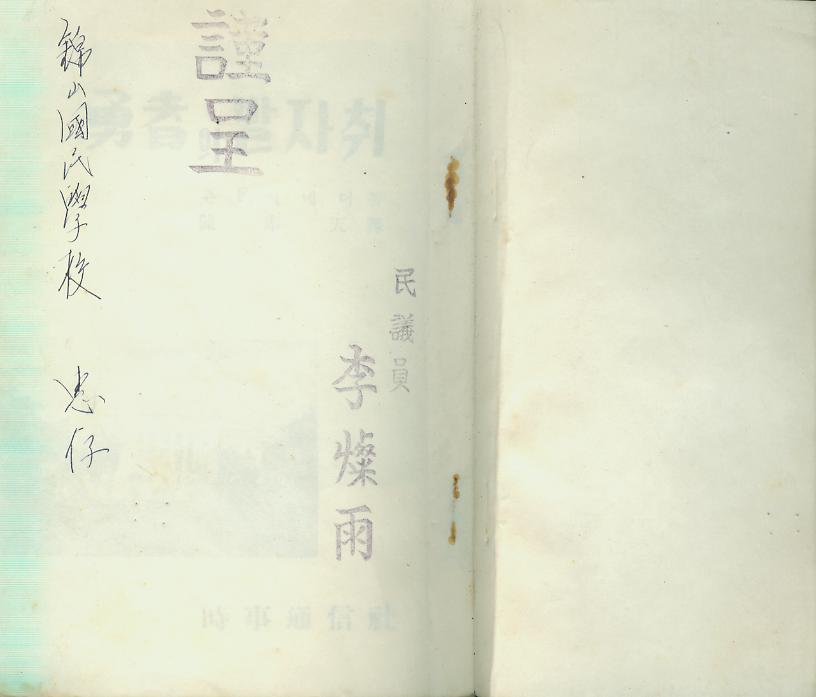 民議員
李燦雨
謹呈
錦山國民學校 惠存